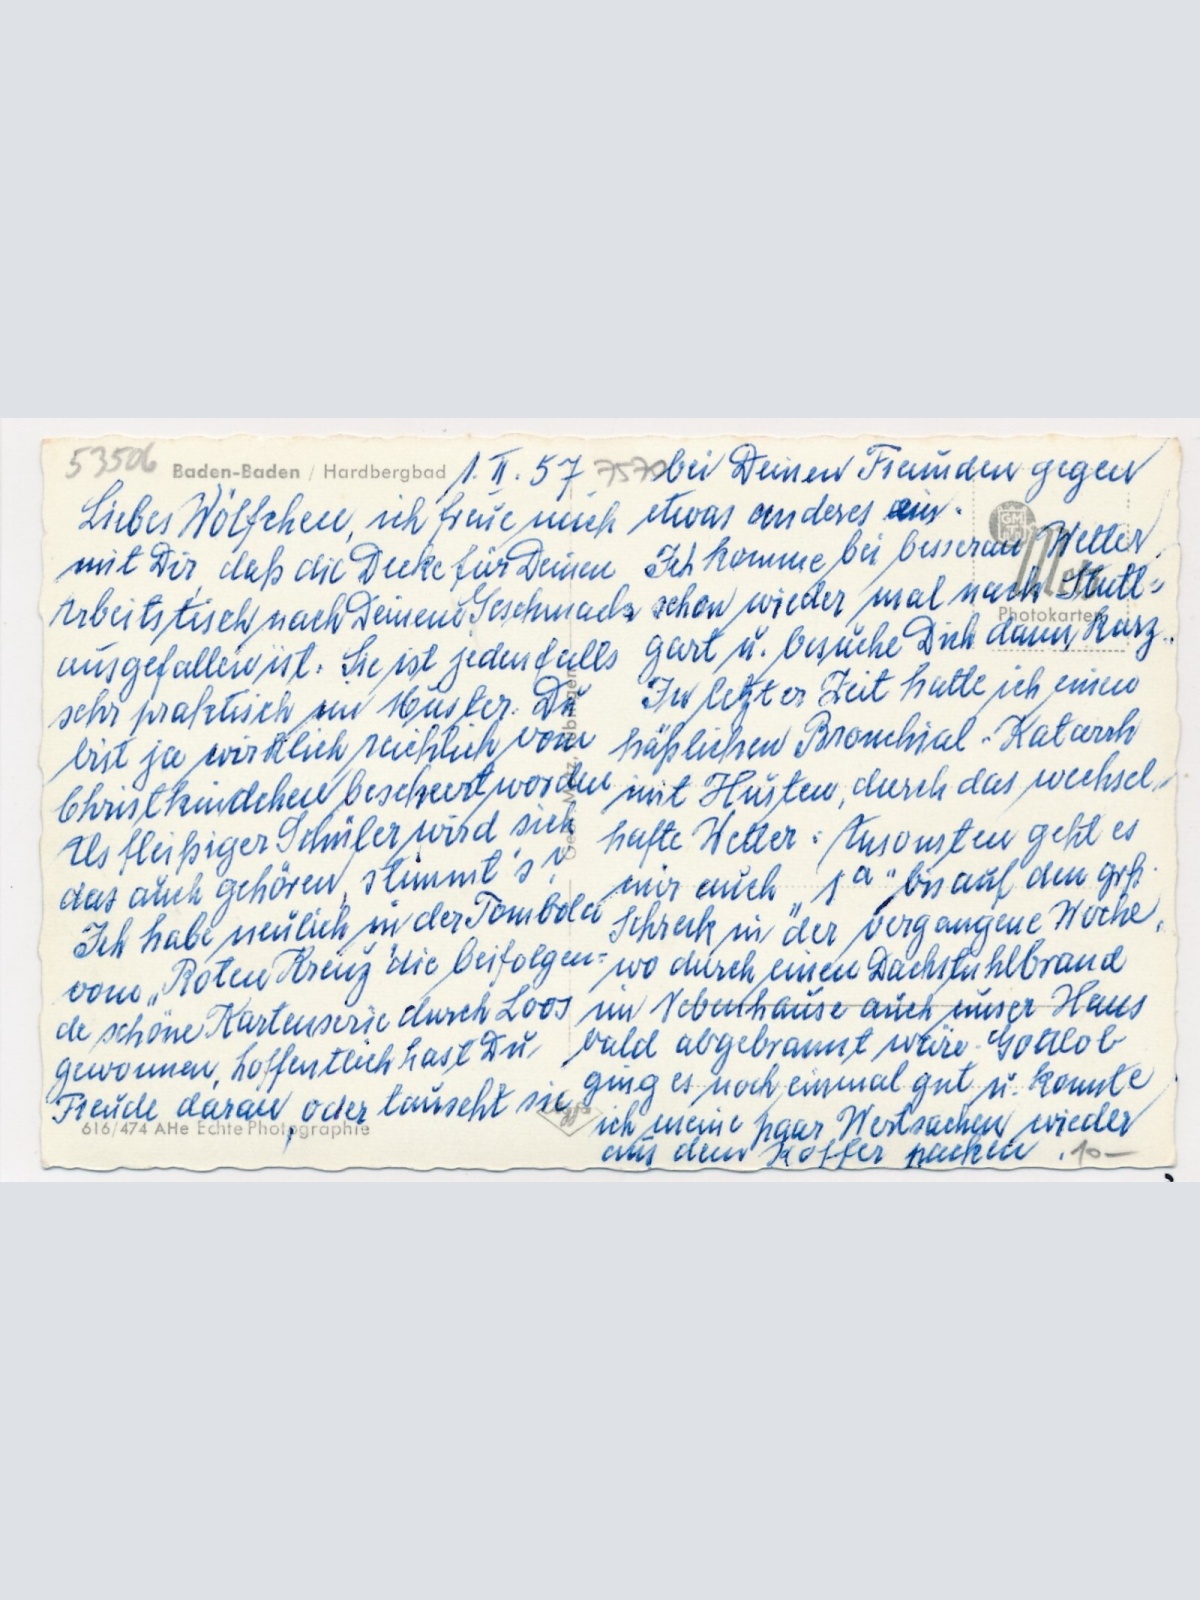 53506
Baden-Baden / Hardbergbad
1. II. 57
7570
Liebes Wölfchen, ich freue mich
mit Dir, daß die Decke für Deinen
Arbeitstisch nach Deinem Geschmack
ausgefallen ist. Sie ist jedenfalls
sehr praktisch im Muster. Du
bist ja wirklich reichlich vom
Christkindchen beschert worden
Als fleißiger Schüler wird sich
das auch gehören, stimmt's?
Ich habe neulich in der Tombola
vom „Roten Kreuz" die beifolgen=
de schöne Kartenserie durch Loos
gewonnen, hoffentlich hast Du
Freude daran, oder tauscht sie
616/474 AHe Echte Photographie
bei Deinen Freunden gegen
etwas anderes ein.
Ich komme bei besserem Wetter
schon wieder mal nach Stutt=
gart u. besuche Dich dann kurz.
In letzter Zeit hatte ich einen
häßlichen Bronchial-Katarrh
mit Husten, durch das wechsel-
hafte Wetter. Ansonsten geht es
mir auch „1a" bis auf den grß.
Schreck in der vergangene Woche,
wo durch einen Dachstuhlbrand
im Nebenhause auch unser Haus
bald abgebrannt wäre. Gottlob
ging es noch einmal gut u. konnte
ich meine paar Wertsachen wieder
aus dem Koffer packen.
10—
Photokarten